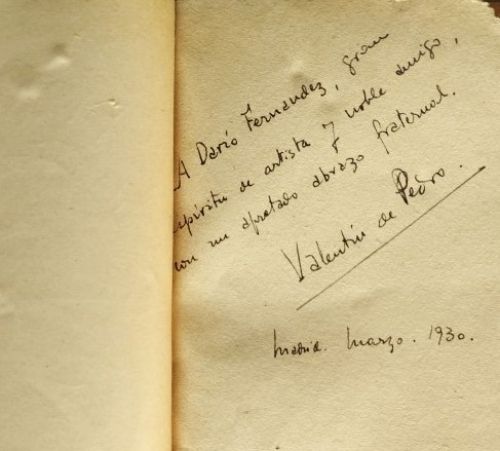 A Darío Fernandez, gran
espíritu de artista y noble amigo,
con un apretado abrazo fraternal.
Valentín de Pedro.
Madrid. Marzo. 1930.